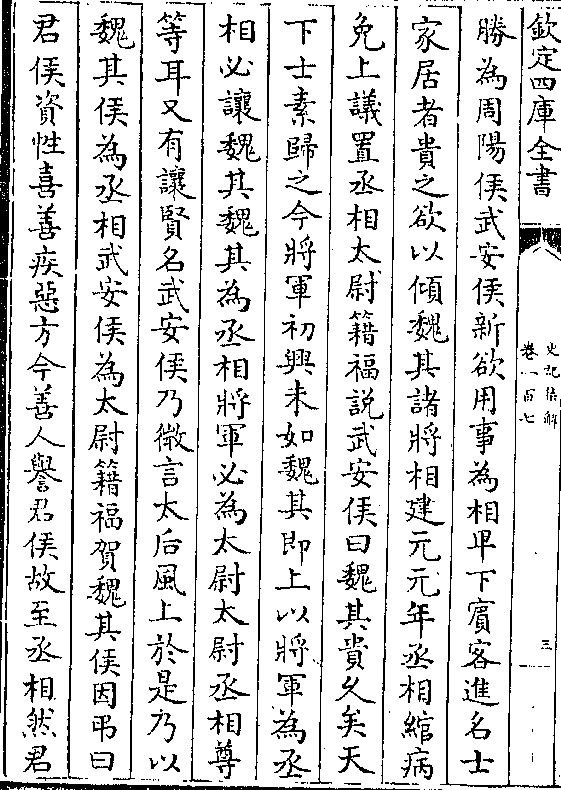 欽定四庫全書
史記集解
卷一百七
三
勝為周陽侯武安侯新欲用事為相卑下賓客進名士
家居者貴之欲以傾魏其諸將相建元元年丞相綰病
免上議置丞相太尉籍福説武安侯曰魏其貴久矣天
下士素歸之今將軍初興未如魏其即上以將軍為丞
相必讓魏其魏其為丞相將軍必為太尉太尉丞相尊
等耳又有讓賢名武安侯乃微言太后風上於是乃以
魏其侯為丞相武安侯為太尉籍福賀魏其侯因弔曰
君侯資性喜善疾惡方今善人譽君侯故至丞相然君